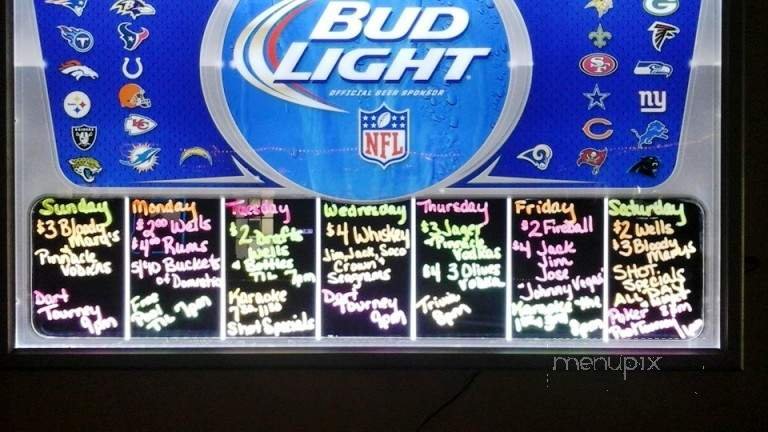 BUD
LIGHT
OFFICIAL BEER SPONSOR
NFL
ny
Sunday
$3 Bloody
Mary's
Pinnacle
Vodkas
Dart
Tourney
9pm
Monday
$2.00 Wells
$4.00 Rums
5/$10 Buckets
of Domestics
Free
Pool
TIL 7pm
Tuesday
$2 Drafts
Wells
& Bottles
TIL 7pm
Karaoke
Shot Specials
Wednesday
$4 Whiskey
Jim, Jack, SoCo
Crown
Seagrams
Dart
Tourney
9pm
Thursday
$3 Jager
Pinnacle
Vodkas
$4 3 Olives
Vodka
Trivia
8pm
Friday
$2 Fireball
$4 Jack
Jim
Jose
"Johnny Vegas"
Karaoke
Saturday
$2 Wells
$3 Bloody
Marys
SHOT
Specials
ALL
Poker
Pool Tourney
menupix